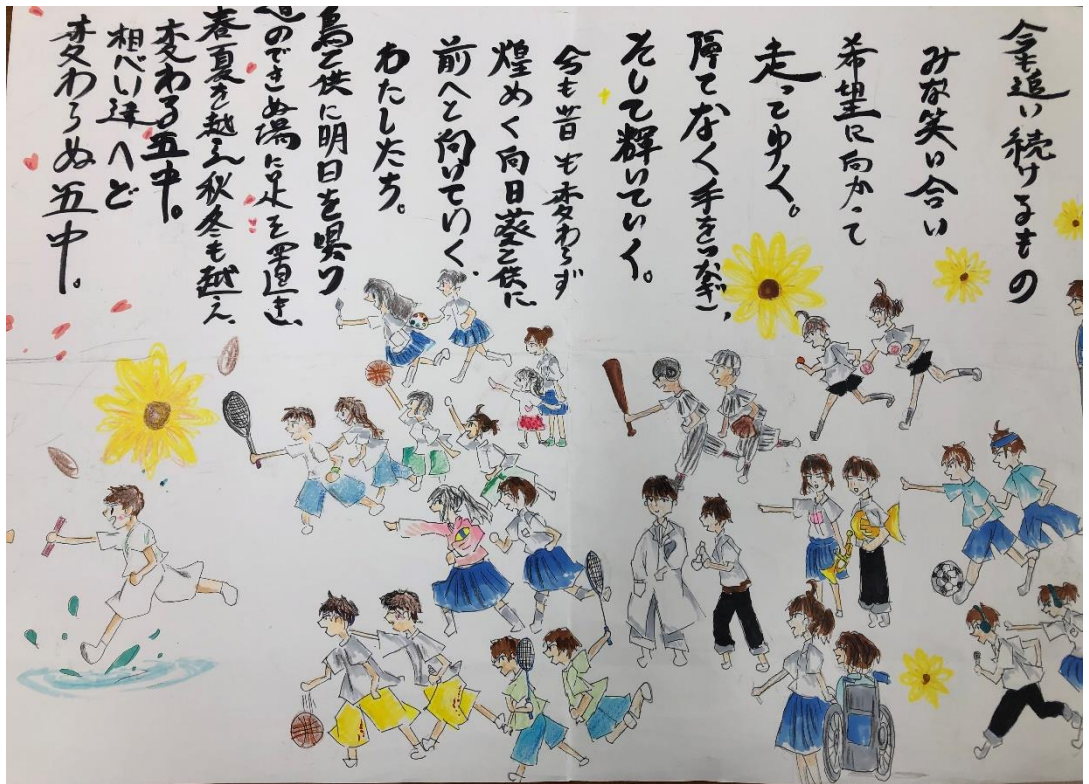 今も追い続けるもの
みな笑い合い
希望に向かって
走ってゆく。
隔てなく手をつなぎ、
そして輝いていく。
今も昔も変わらず
煌めく向日葵と供に
前へと向いていく、
わたしたち。
鳥と供に明日を唄い
のできぬ場に足を置き、
春夏を越え秋冬も越え、
変わる五中。
想い違へど
変わらぬ五中。